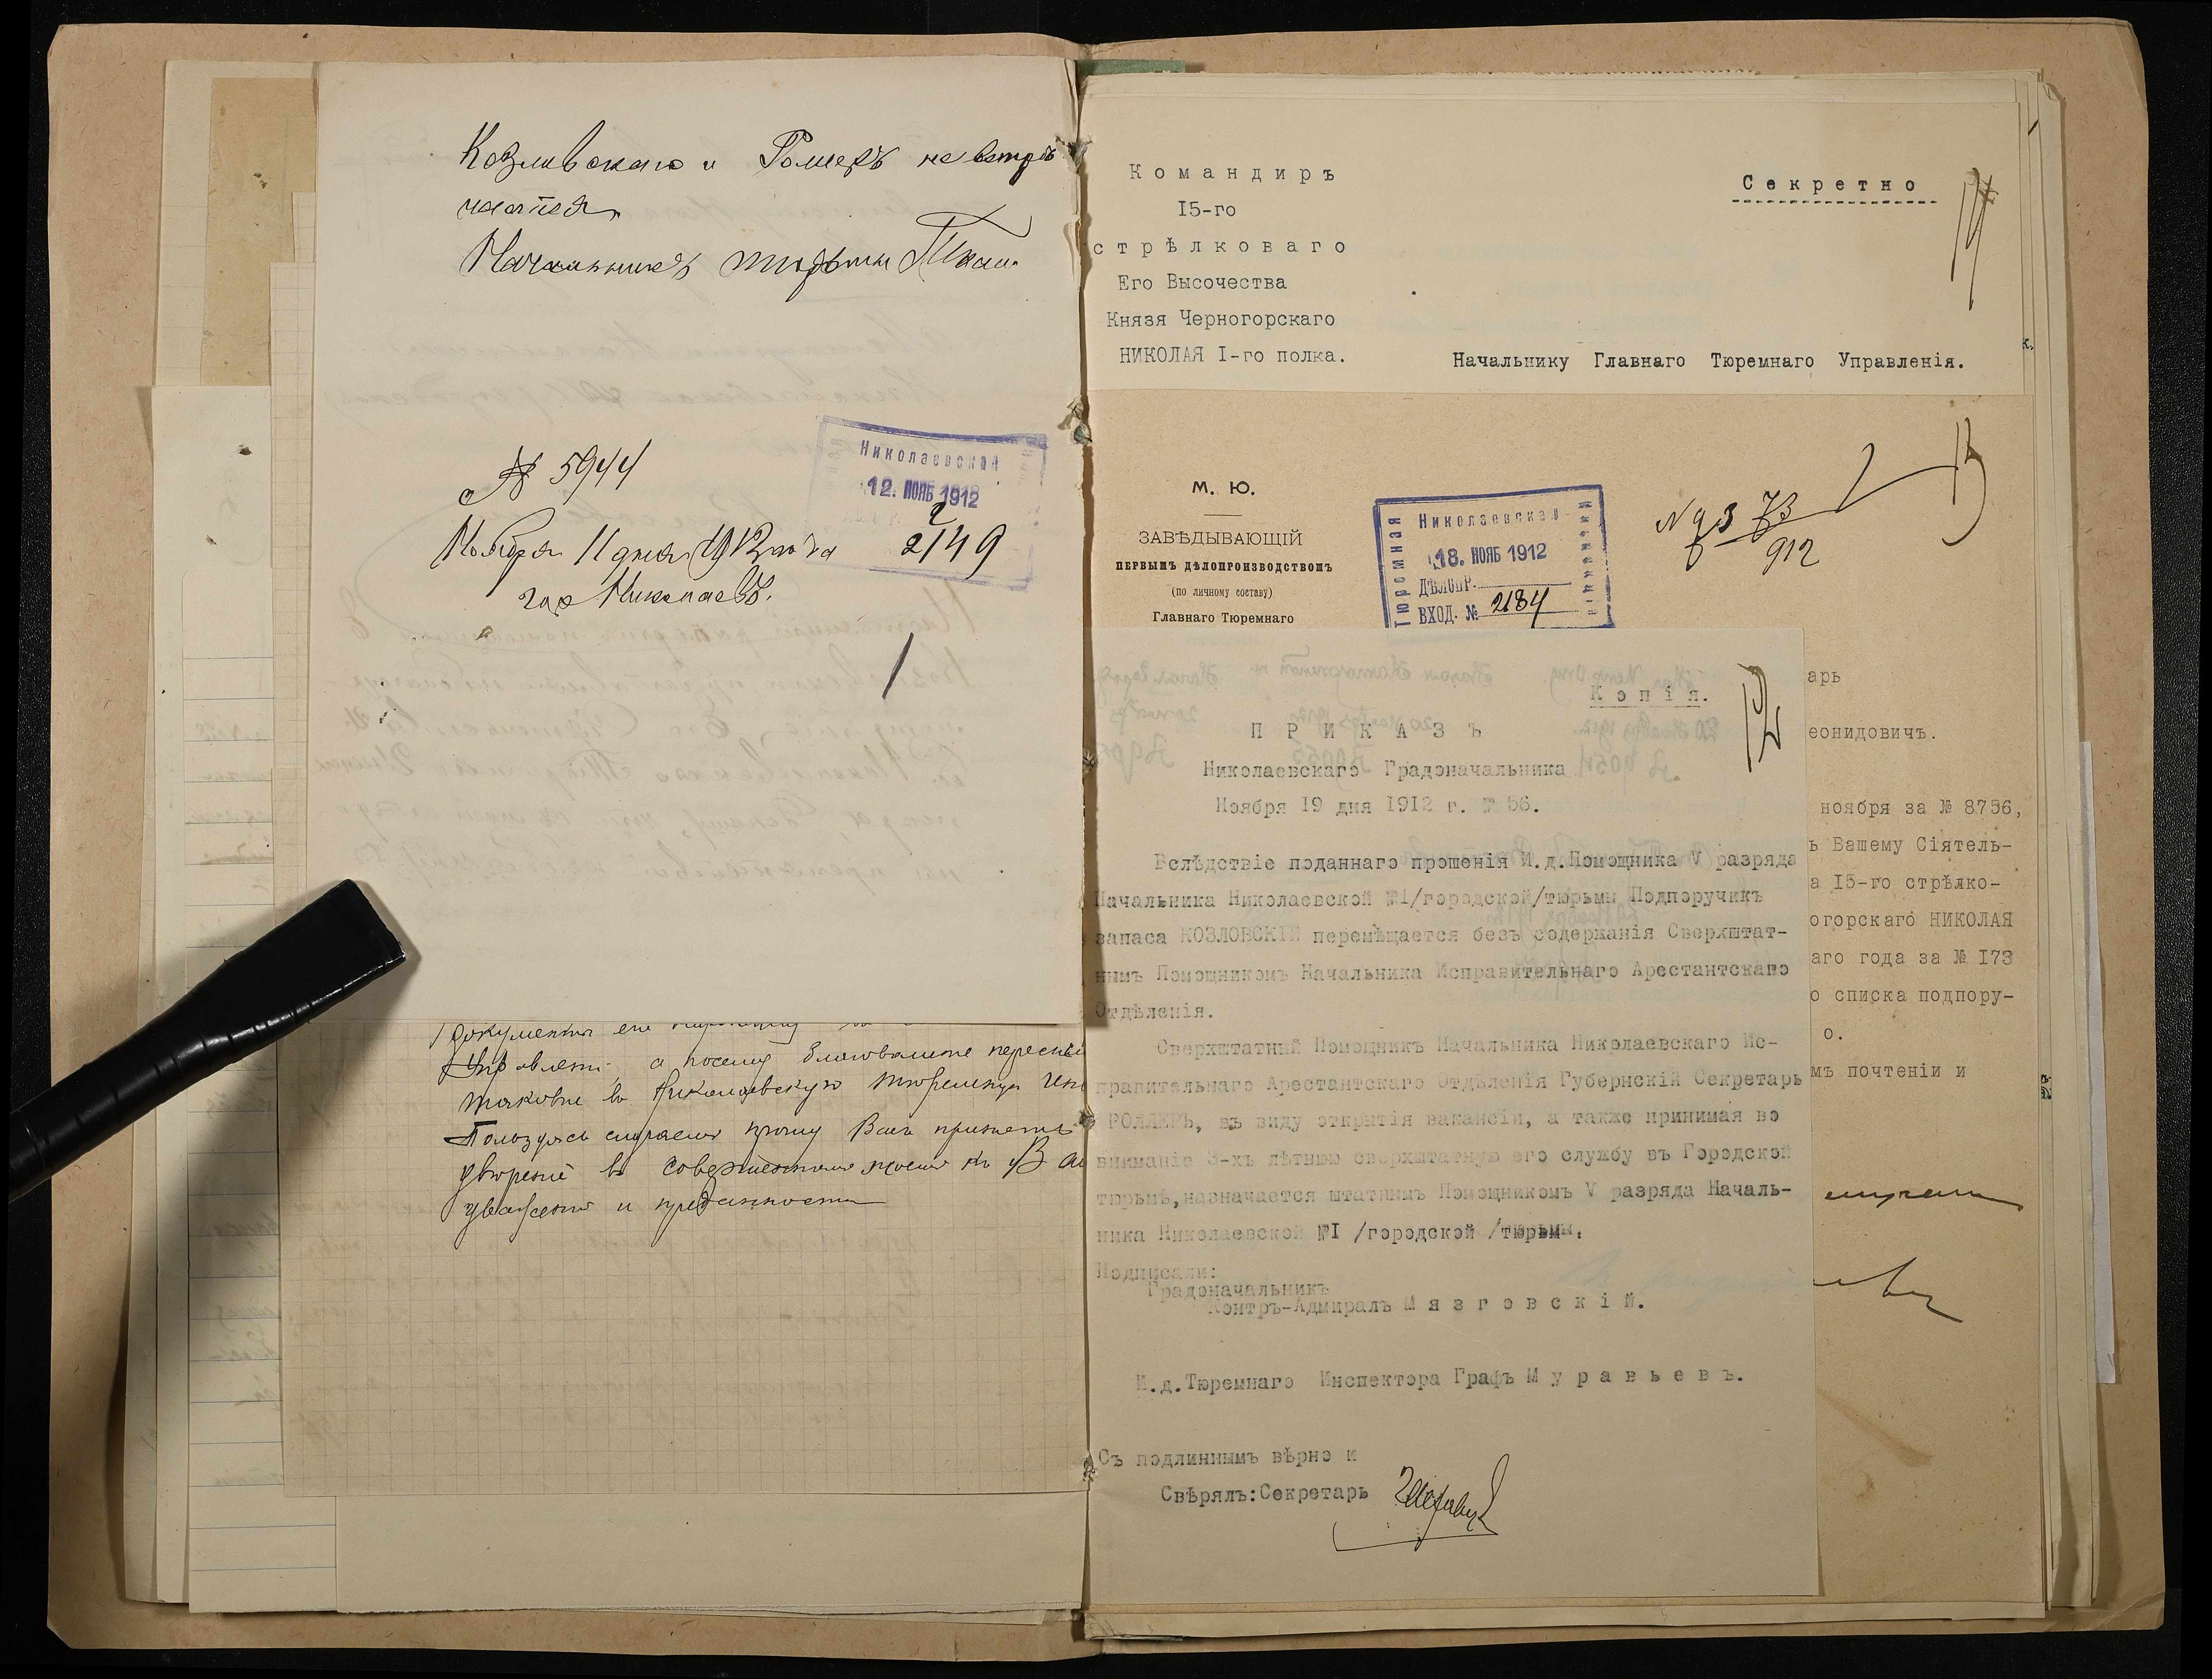 Козловскаго и Роллеръ не встрѣ
чается
Начальникъ тюрьмы
№ 5944
Ноября 11 дня 1912 года
гор Николаевъ.
Николаевская
12. НОЯБ 1912
2149
документы его
Управлені а посему благоволите
таковые въ Николаевскую тюремную
Пользуясь случаемъ прошу Васъ принять
увѣреніе въ совершенномъ моемъ къ Ва
уваженіи и преданности
Командиръ
15-го
стрѣлковаго
Его Высочества
Князя Черногорскаго
НИКОЛАЯ I-го полка.
Секретно
14
Начальнику Главнаго Тюремнаго Управленія.
М. Ю.
ЗАВѢДЫВАЮЩІЙ
ПЕРВЫМЪ ДѢЛОПРОИЗВОДСТВОМЪ
(по личному составу)
Главнаго Тюремнаго
Тюремная
Николаевская
18. НОЯБ 1912
ДѢЛОПР.
ВХОД. № 2184
912
13
арь
еонидовичъ.
ноября за № 8756,
ъ Вашему Сіятель-
а 15-го стрѣлко-
огорскаго НИКОЛАЯ
аго года за № 173
о списка подпору-
о.
мъ почтеніи и
12
Копія.
ПРИКАЗЪ
Николаевскаго Градоначальника
Ноября 19 дня 1912 г. № 56.
Вслѣдствіе поданнаго прошенія И.д.Помощника V разряда
Начальника Николаевской №I/городской/тюрьмы Подпоручикъ
запаса КОЗЛОВСКІЙ перемѣщается безъ содержанія Сверхштат-
нымъ Помощникомъ Начальника Исправительнаго Арестантскаго
Отдѣленія.
Сверхштатный Помощникъ Начальника Николаевскаго Ис-
правительнаго Арестантскаго Отдѣленія Губернскій Секретарь
РОЛЛЕРЪ, въ виду открытія вакансіи, а также принимая во
вниманіе 3-хъ лѣтнюю сверхштатную его службу въ Городской
тюрьмѣ,назначается штатнымъ Помощникомъ V разряда Началь-
ника Николаевской №I /городской /тюрьмы.
Подписали:
Градоначальникъ
Контръ-Адмиралъ Мязговскій.
И.д.Тюремнаго Инспектора Графъ Муравьевъ.
Съ подлиннымъ вѣрно и
Свѣрялъ:Секретарь